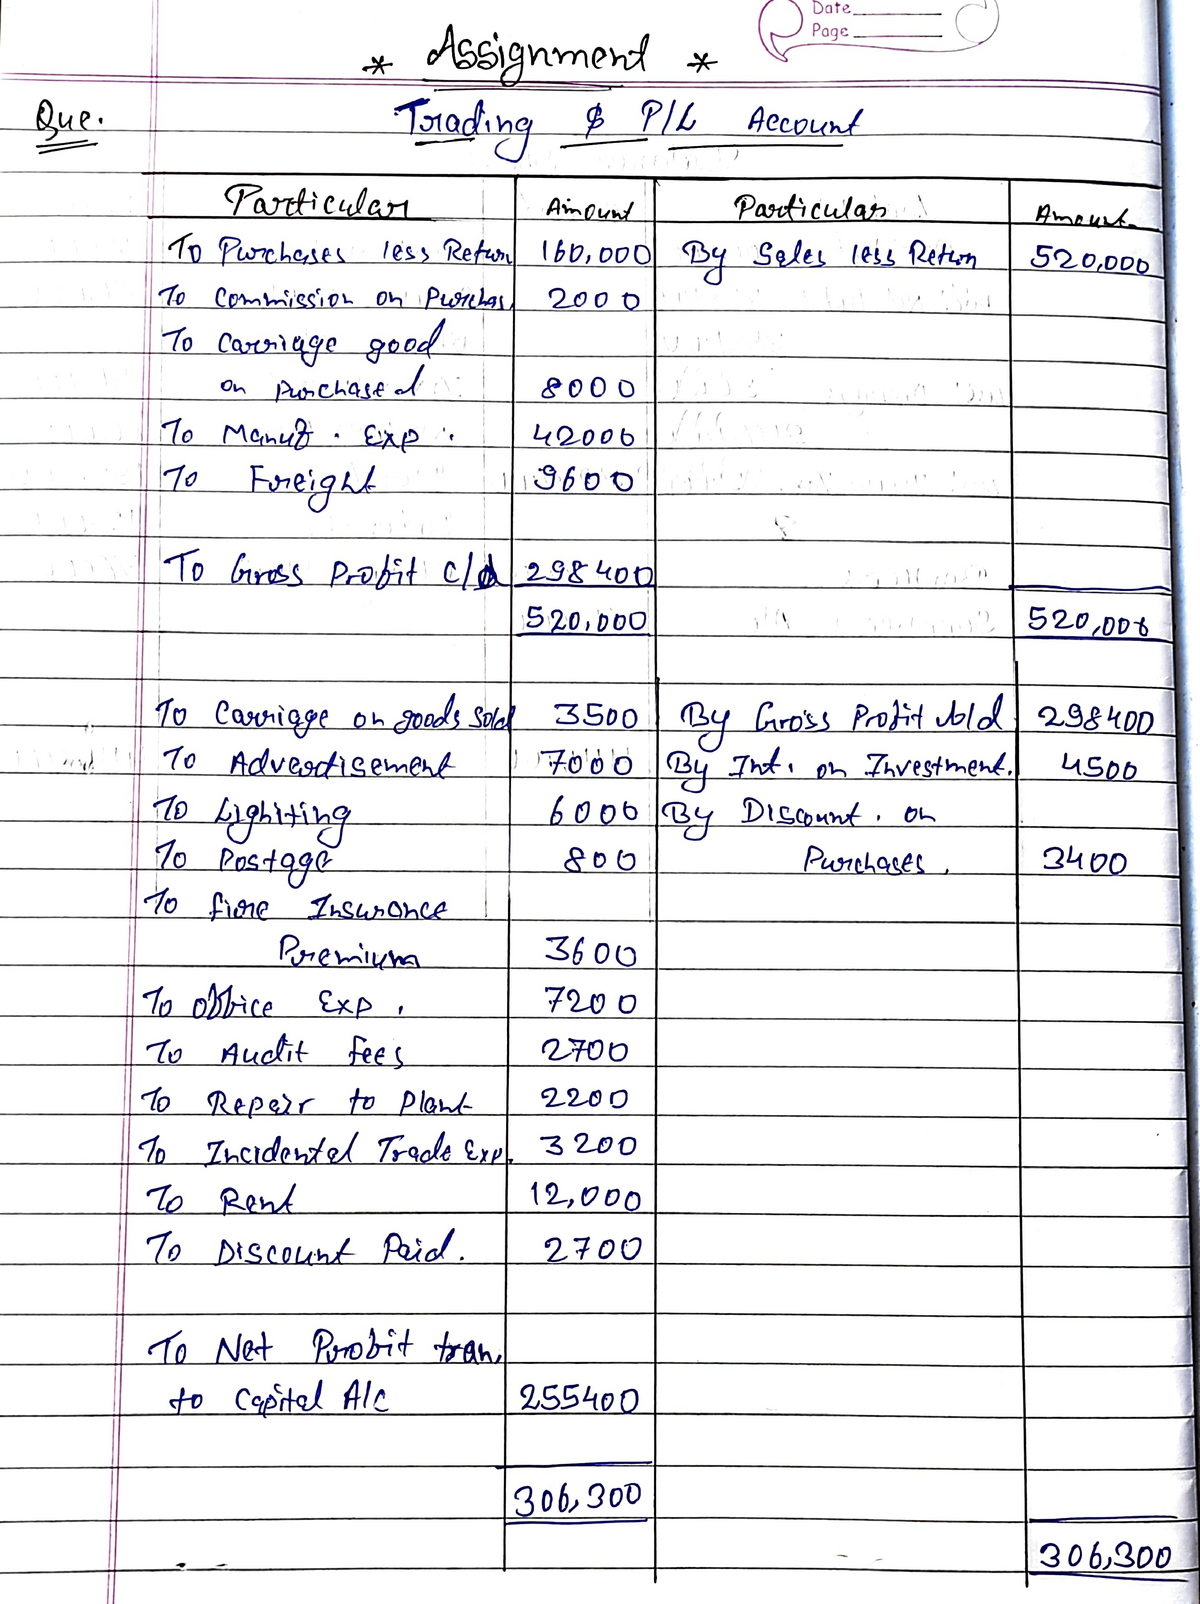 Date
Page
* Assignment *
Que. Trading & P/L Account
Particular Amount Particular Amount
To Purchases less Return 160,000 By Sales less Return 520,000
To Commission on Purchas. 2000
To Carriage good
on purchased 8000
To Manuf. Exp. 42000
To Freight 9600
To Gross Profit c/d 298400
520,000 520,000
To Carriage on goods sold 3500 By Gross Profit b/d 298400
To Advertisement 7000 By Int. on Investment. 4500
To Lighiting 6000 By Discount. on
To Postage 800 Purchases. 3400
To fire Insurance
Premium 3600
To Office Exp. 7200
To Audit fees 2700
To Repair to Plant 2200
To Incidental Trade Exp. 3200
To Rent 12,000
To Discount Paid. 2700
To Net Profit tran.
to Capital A/c 255400
306,300
306,300